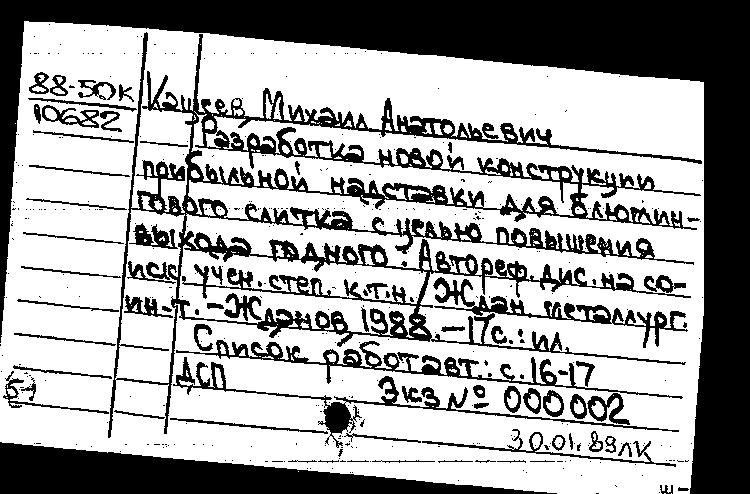 88-50к
10682
Кащеев, Михаил Анатольевич
Разработка новой конструкции
прибыльной надставки для блюмин-
гового слитка с целью повышения
выхода годного : Автореф. дис. на со-
иск. учен. степ. к.т.н. / Ждан. металлург.
ин-т. - Жданов, 1988. - 17с. : ил.
Список работ авт.: с. 16-17
ДСП Экз № 000002
30.01.89лк